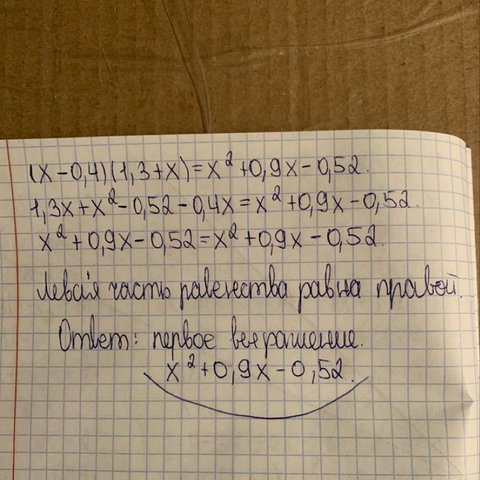 (x-0,4)(1,3+x)=x²+0,9x-0,52.
1,3x+x²-0,52-0,4x=x²+0,9x-0,52.
x²+0,9x-0,52=x²+0,9x-0,52.
Левая часть равенства равна правой.
Ответ: первое выражение.
x²+0,9x-0,52.